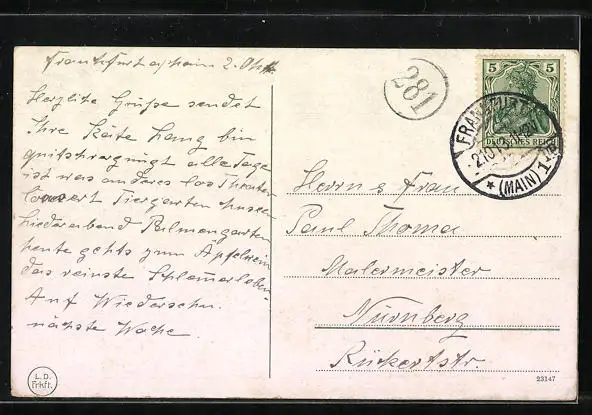 Frankfurt a/Main 2. Okt.
Herzliche Grüße sendet
Ihre Käte Lang bin
quitschvergnügt alle Tage
ist was anderes los Theater
Tiergarten Museen
Liederabend Palmengarten
heute gehts zum Apfelwein
das reinste Schlemerleben.
Auf Wiedersehn.
nächste Woche.
281
5 5
DEUTSCHES REICH
FRANKFURT
2.10.13. 11-12V
* (MAIN) 1
Herrn & Frau
Paul Thoma
Malermeister
Nürnberg
Rückertstr.
L.D.
Frkft.
23147